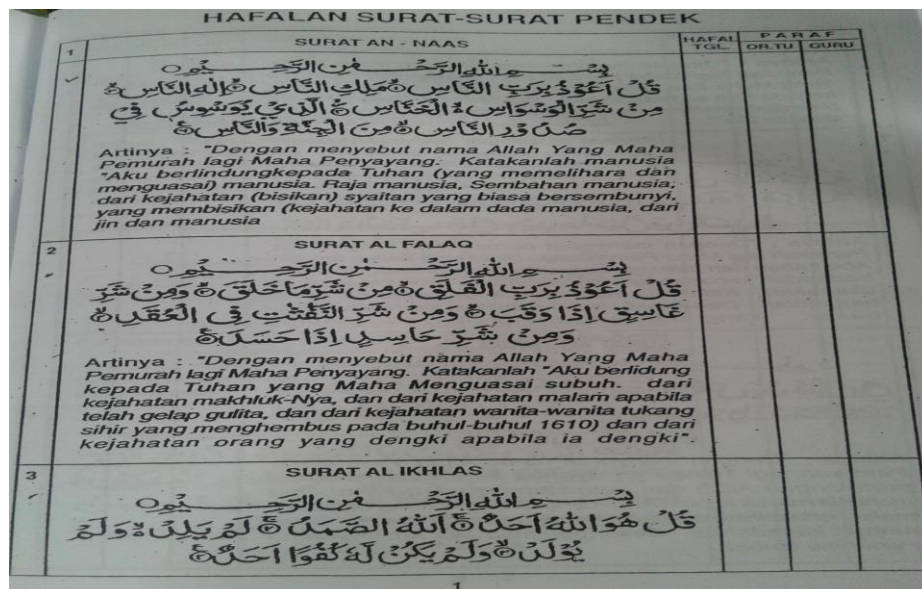 HAFALAN SURAT-SURAT PENDEK
1 SURAT AN - NAAS HAFAL TGL. PARAF OR.TU GURU
بِسْمِ اللّٰهِ الرَّحْمٰنِ الرَّحِيْمِ ○
قُلْ اَعُوْذُ بِرَبِّ النَّاسِ ۞ مَلِكِ النَّاسِ ۞ اِلٰهِ النَّاسِ ۞
مِنْ شَرِّ الْوَسْوَاسِ ۞ الْخَنَّاسِ ۞ الَّذِيْ يُوَسْوِسُ فِيْ
صُدُوْرِ النَّاسِ ۞ مِنَ الْجِنَّةِ وَالنَّاسِ ۞
Artinya : "Dengan menyebut nama Allah Yang Maha
Pemurah lagi Maha Penyayang. Katakanlah manusia
"Aku berlindungkepada Tuhan (yang memelihara dan
menguasai) manusia. Raja manusia, Sembahan manusia,
dari kejahatan (bisikan) syaitan yang biasa bersembunyi,
yang membisikan (kejahatan ke dalam dada manusia, dari
jin dan manusia
2 SURAT AL FALAQ
بِسْمِ اللّٰهِ الرَّحْمٰنِ الرَّحِيْمِ ○
قُلْ اَعُوْذُ بِرَبِّ الْفَلَقِ ۞ مِنْ شَرِّ مَا خَلَقَ ۞ وَمِنْ شَرِّ
غَاسِقٍ اِذَا وَقَبَ ۞ وَمِنْ شَرِّ النَّفّٰثٰتِ فِى الْعُقَدِ ۞
وَمِنْ شَرِّ حَاسِدٍ اِذَا حَسَدَ ۞
Artinya : "Dengan menyebut nama Allah Yang Maha
Pemurah lagi Maha Penyayang. Katakanlah "Aku berlidung
kepada Tuhan yang Maha Menguasai subuh. dari
kejahatan makhluk-Nya, dan dari kejahatan malam apabila
telah gelap gulita, dan dari kejahatan wanita-wanita tukang
sihir yang menghembus pada buhul-buhul 1610) dan dari
kejahatan orang yang dengki apabila ia dengki".
3 SURAT AL IKHLAS
بِسْمِ اللّٰهِ الرَّحْمٰنِ الرَّحِيْمِ ○
قُلْ هُوَ اللّٰهُ اَحَدٌ ۞ اَللّٰهُ الصَّمَدُ ۞ لَمْ يَلِدْ ۞ وَلَمْ
يُوْلَدْ ۞ وَلَمْ يَكُنْ لَّهٗ كُفُوًا اَحَدٌ ۞
1